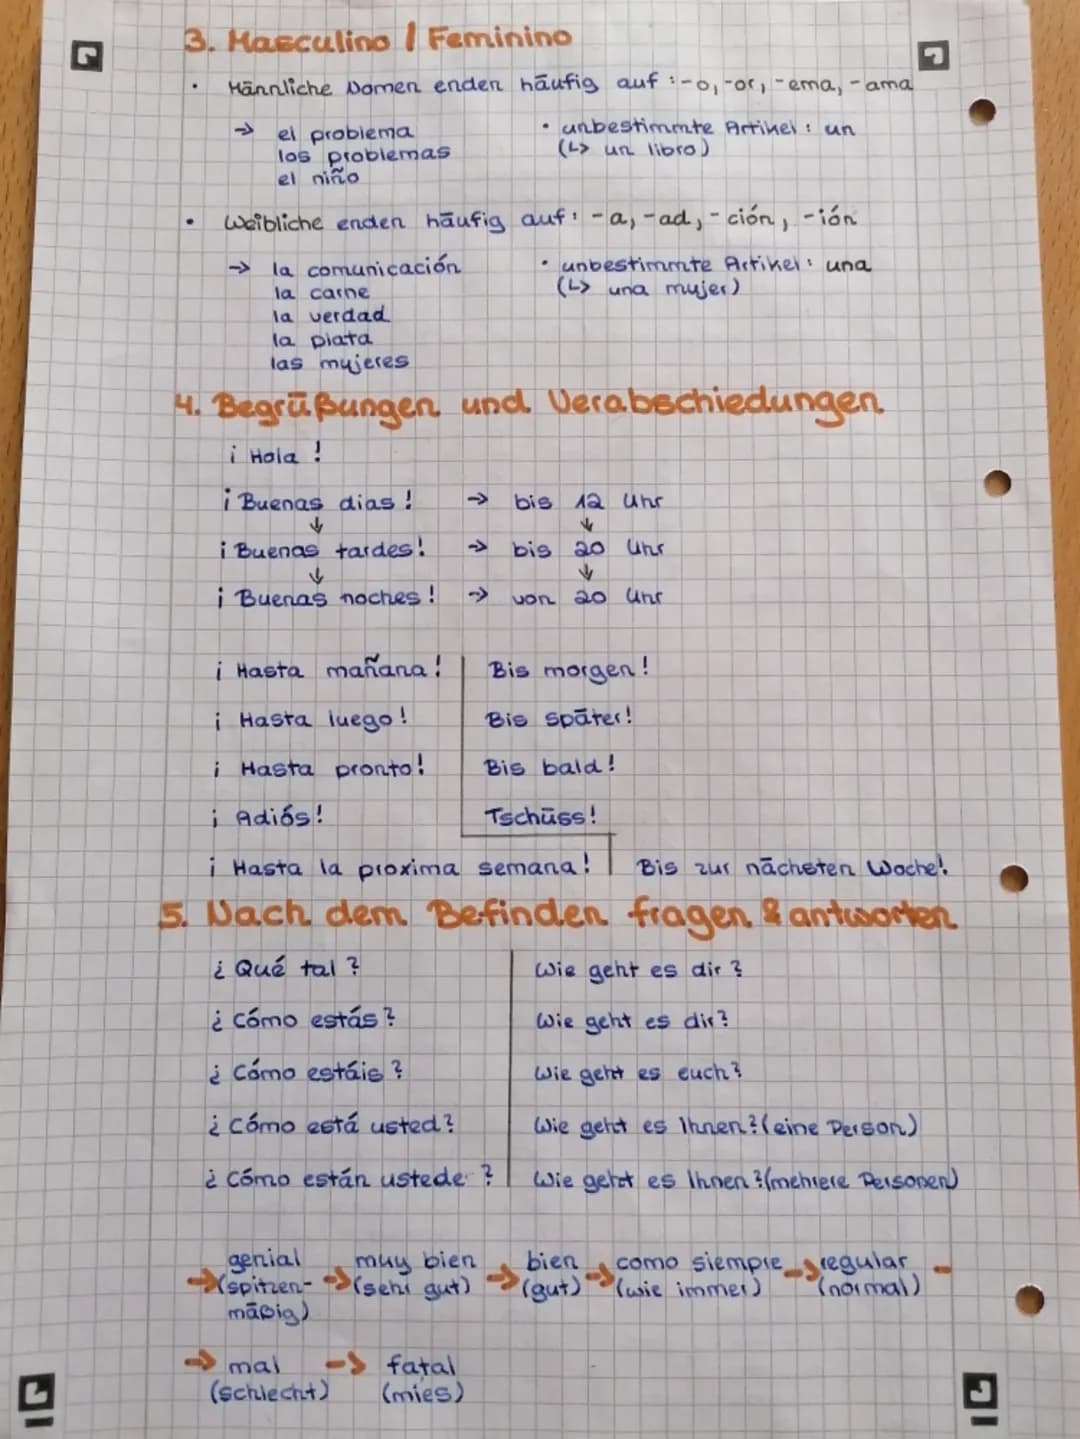 3. Masculino / Feminino
• Männliche Nomen enden häufig auf: -o, -or, -ema, -ama
→ el problema
los problemas
el niño
• unbestimmte Artikel: un
(↳ un libro)
• Weibliche enden häufig auf: -a, -ad, -ción, -ión
→ la comunicación
la carne
la verdad
la plata
las mujeres
• unbestimmte Artikel: una
(↳ una mujer)
4. Begrüßungen und Verabschiedungen
¡ Hola !
¡ Buenas dias ! → bis 12 Uhr
↓ ↓
¡ Buenas tardes! → bis 20 Uhr
↓ ↓
¡ Buenas noches! → von 20 Uhr
¡ Hasta mañana! Bis morgen!
¡ Hasta luego! Bis später!
¡ Hasta pronto! Bis bald!
¡ Adiós! Tschüss!
¡ Hasta la proxima semana! Bis zur nächsten Woche!
5. Nach dem Befinden fragen & antworten
¿ Qué tal ? Wie geht es dir ?
¿ Cómo estás? Wie geht es dir?
¿ Cómo estáis ? Wie geht es euch?
¿ Cómo está usted? Wie geht es Ihnen? (eine Person)
¿ Cómo están ustede ? Wie geht es Ihnen? (mehrere Personen)
genial → muy bien → bien → como siempre → regular →
→ (spitzen- (sehr gut) (gut) (wie immer) (normal)
mäßig)
→ mal → fatal
(schlecht) (mies)